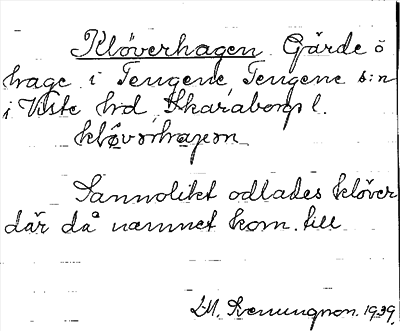 Klöverhagen Gärde ö
hage i Tengene, Tengene s:n
i Viste hrd, Skaraborgs l.
klǿvərhagən
Sannolikt odlades klöver
där då namnet kom till
1939.